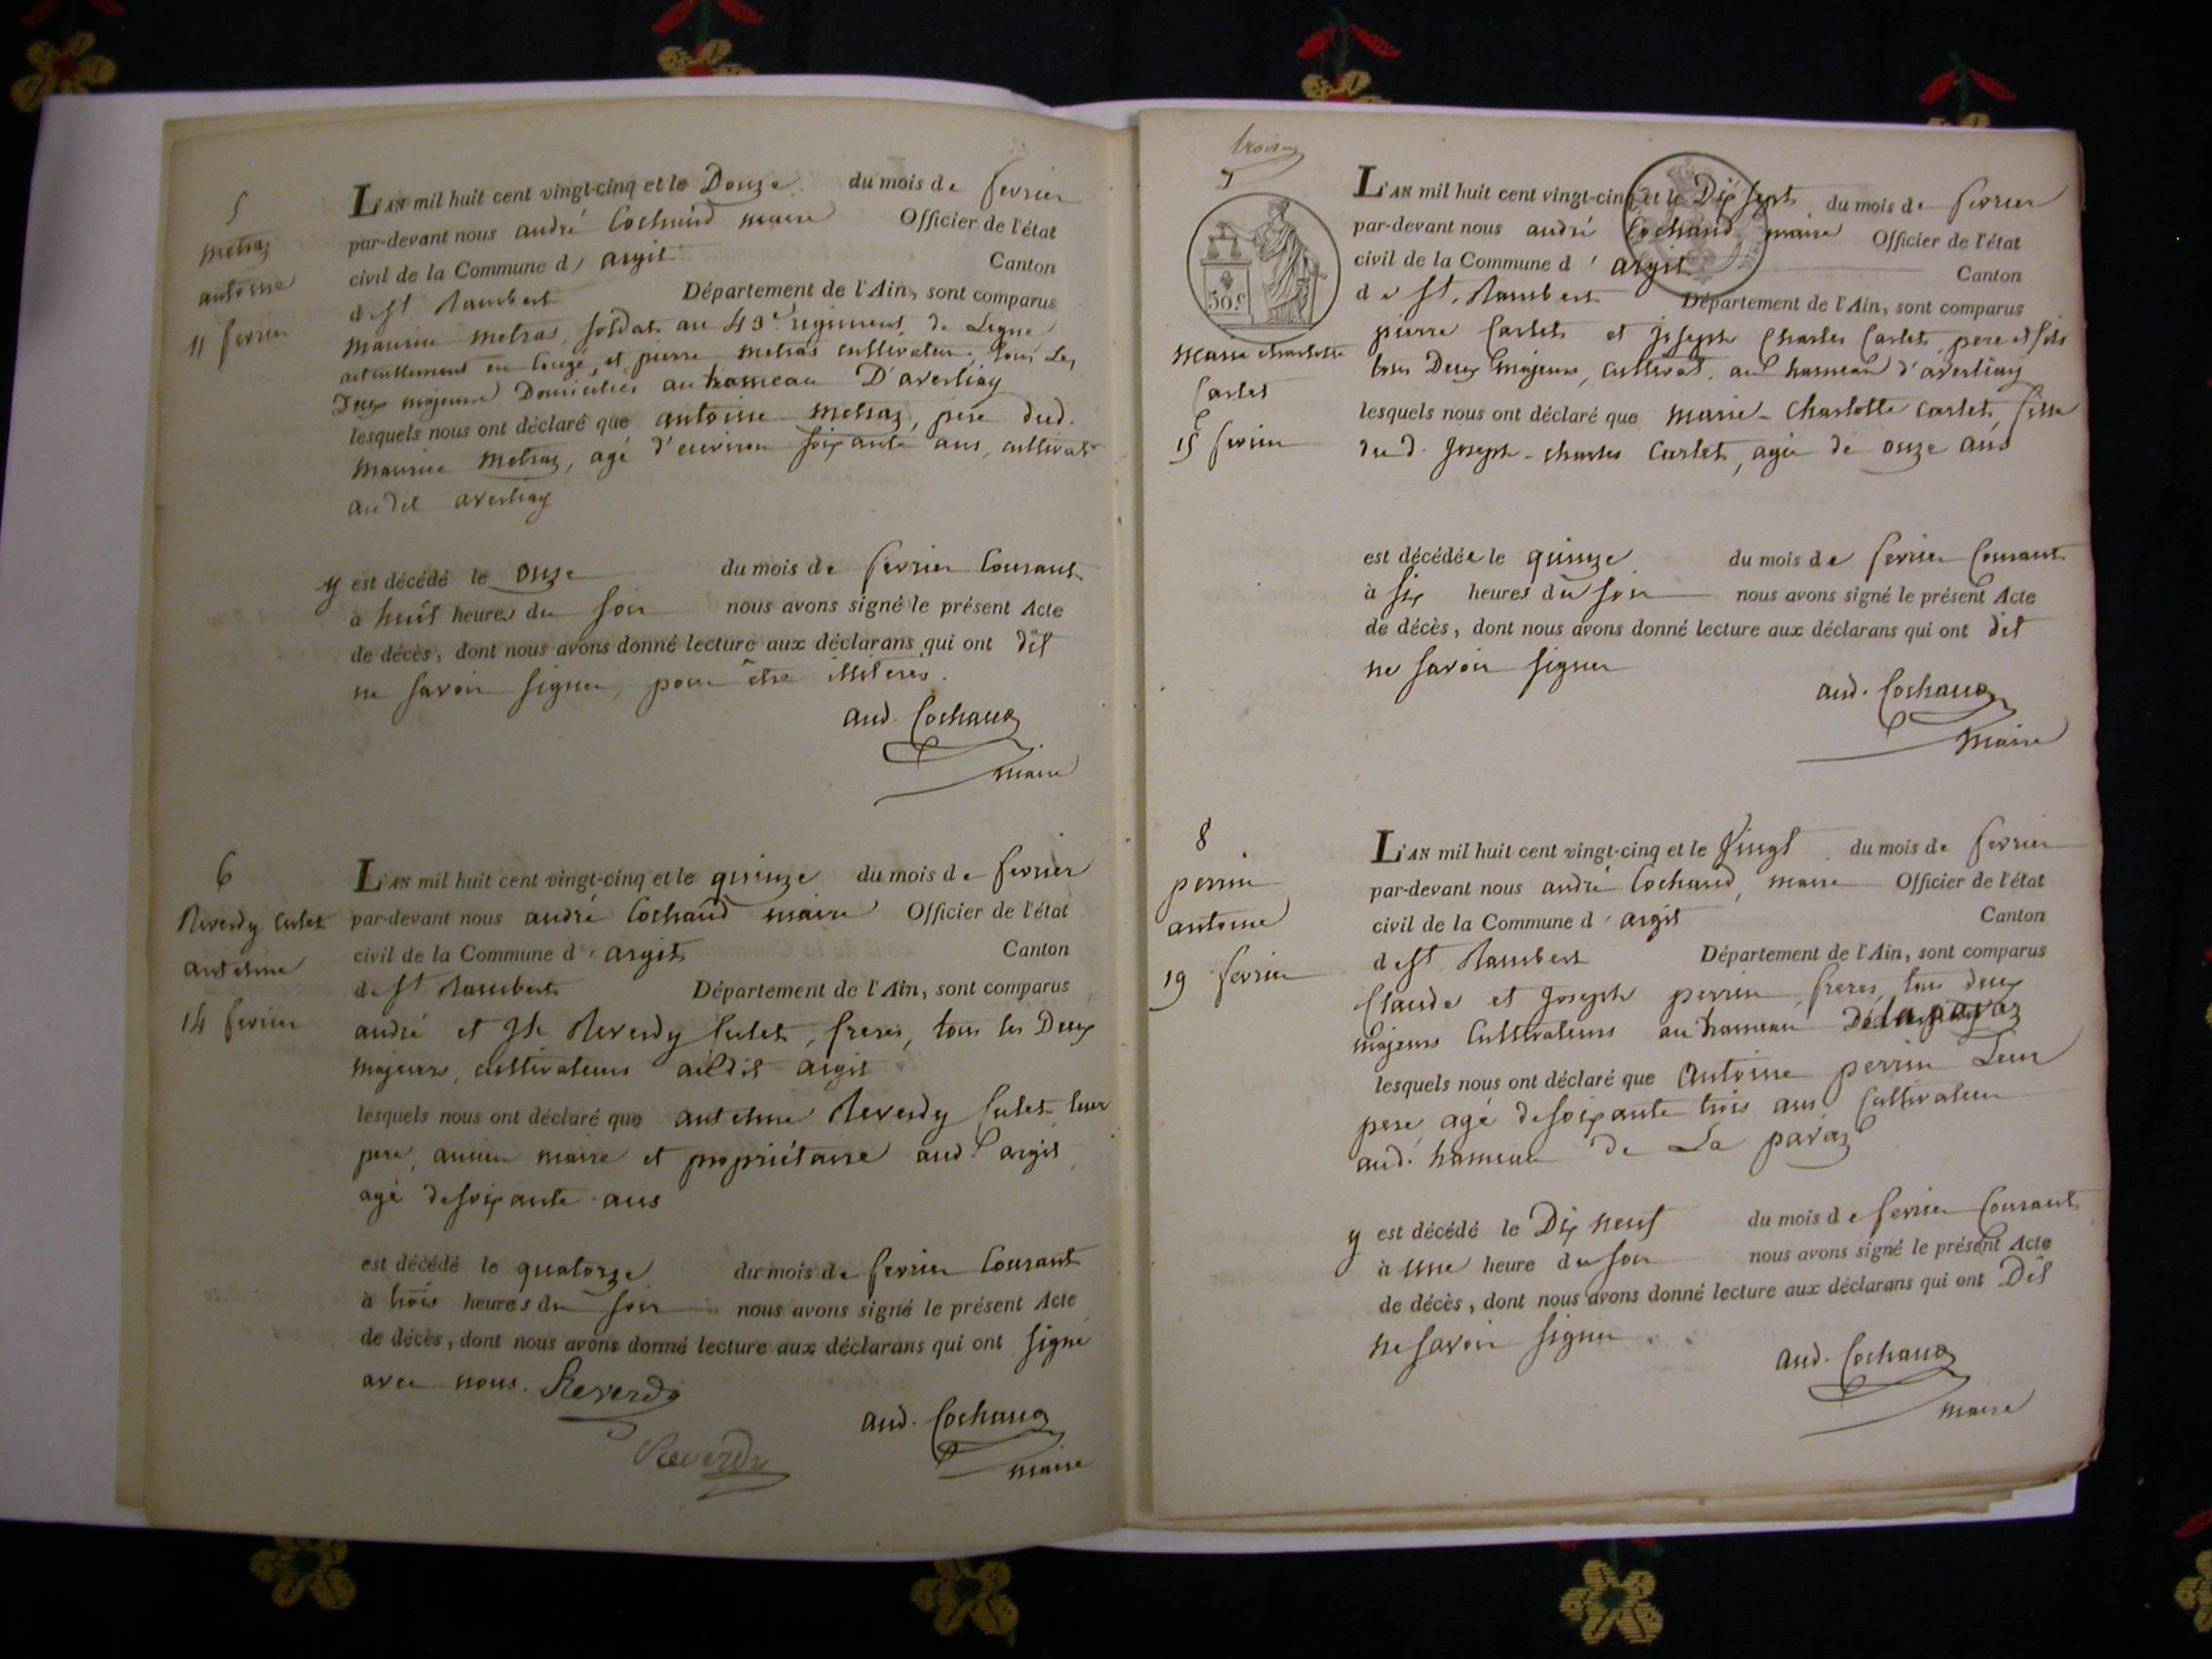 5
metraz
antoine
11 fevrier
L'AN mil huit cent vingt-cinq et le Douze du mois de fevrier
par-devant nous andré Cochaud maire Officier de l'état
civil de la Commune d' argit Canton
de St. Rambert Département de l'Ain, sont comparus
maurice metras, soldat au 43e regiment de Ligne
actuellement en Congé, et pierre metras cultivateur, tous les
Deux majeurs Domiciliés au hameau D'averliay
lesquels nous ont déclaré que antoine metraz, pere dud.
maurice metraz, agé d'environ soixante ans, cultivatr
audit averliay
y est décédé le onze du mois de fevrier Courant
à huit heures du soir nous avons signé le présent Acte
de décès, dont nous avons donné lecture aux déclarans qui ont dit
ne savoir signer, pour être illiterés.
and. Cochaud
maire
6
Reverdy Culet
antelme
14 fevrier
L'AN mil huit cent vingt-cinq et le quinze du mois de fevrier
par-devant nous andré Cochaud maire Officier de l'état
civil de la Commune d' argit Canton
de St Rambert Département de l'Ain, sont comparus
andré et Jh Reverdy Culet, freres, tous les Deux
majeurs, cultivateurs audit argit
lesquels nous ont déclaré que antelme Reverdy Culet leur
pere, ancien maire et propriétaire aud. argit,
agé de soixante ans
est décédé le quatorze du mois de fevrier Courant
à trois heures du soir nous avons signé le présent Acte
de décès, dont nous avons donné lecture aux déclarans qui ont signé
avec nous. Reverdy
and. Cochaud
Reverdy
maire
7
50 c
marie charlotte
Carlet
15 fevrier
L'AN mil huit cent vingt-cinq et le Dix sept du mois de fevrier
par-devant nous andré Cochaud maire Officier de l'état
civil de la Commune d' argit Canton
de St. Rambert Département de l'Ain, sont comparus
pierre Carlet et Joseph Charles Carlet, pere et fils
tous Deux majeurs, cultivat. au hameau d'averliay
lesquels nous ont déclaré que marie-Charlotte Carlet, fille
dud. Joseph-charles Carlet, agée de onze ans
est décédée le quinze du mois de fevrier Courant
à six heures du soir nous avons signé le présent Acte
de décès, dont nous avons donné lecture aux déclarans qui ont dit
ne savoir signer
and. Cochaud
maire
8
perrin
antoine
19 fevrier
L'AN mil huit cent vingt-cinq et le vingt du mois de fevrier
par-devant nous andré Cochaud, maire Officier de l'état
civil de la Commune d' argit Canton
de St. Rambert Département de l'Ain, sont comparus
Claude et Joseph perrin, freres, tous deux
majeurs Cultivateurs au hameau De la pavaz
lesquels nous ont déclaré que Antoine perrin Leur
pere, agé de soixante trois ans Cultivateur
aud. hameau de La pavaz
y est décédé le Dix neuf du mois de fevrier Courant
à une heure du soir nous avons signé le présent Acte
de décès, dont nous avons donné lecture aux déclarans qui ont Dit
ne savoir signer
and. Cochaud
maire